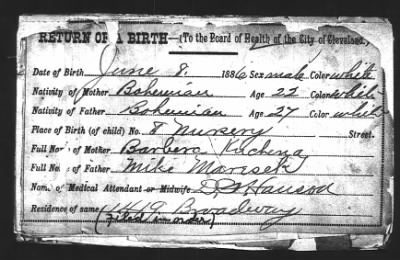 RETURN OF A BIRTH—(To the Board of Health of the City of Cleveland.)
Date of Birth June 8. 1886 Sex male Color white
Nativity of Mother Bohemian Age 22 Color white
Nativity of Father Bohemian Age 27 Color white
Place of Birth (of child) No. 8 Nursery Street.
Full Name of Mother Barbera Kuchena
Full Name of Father Mike Marisek
Name of Medical Attendant or Midwife Hanson
Residence of same 1419 Broadway
(filed in order)